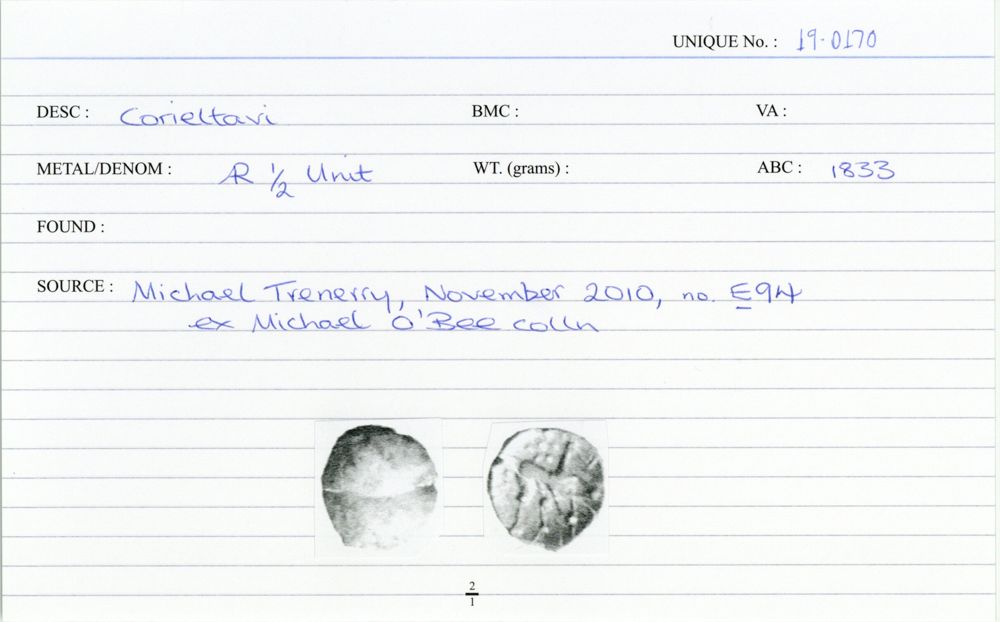 UNIQUE No. : 19-0170
DESC : Corieltavi BMC : VA :
METAL/DENOM : AR 1/2 Unit WT. (grams) : ABC : 1833
FOUND :
SOURCE : Michael Trenerry, November 2010, no. E94
ex Michael O'Bee colln
2
1